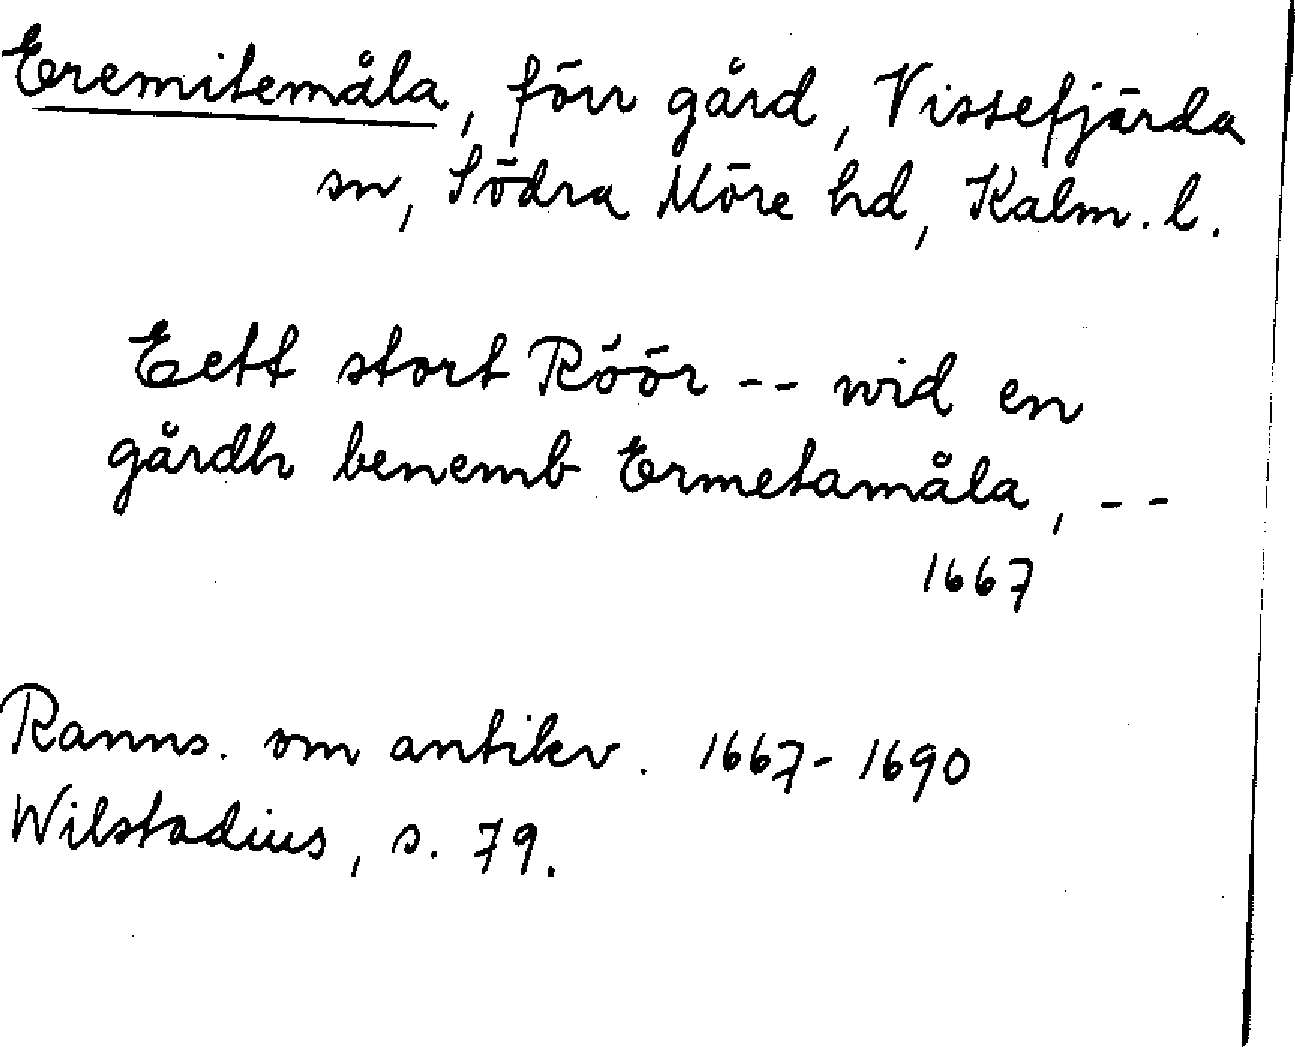 Eremitemåla, förr gård, Vissefjärda
sn, Södra Möre hd, Kalm. l.
Eett stort Röör -- wid en
gårdh benemb Ermetamåla, --
1667
Ranns. om antikv. 1667-1690
Wilstadius, s. 79.